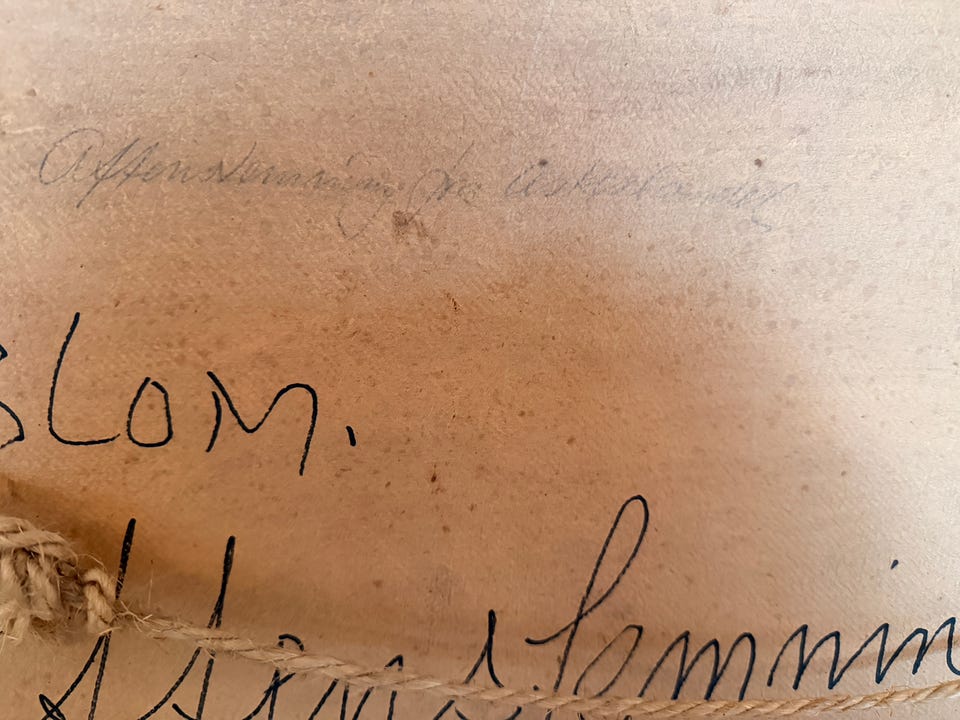 Aftenstemning fra
Blom.
Aftenstemnin